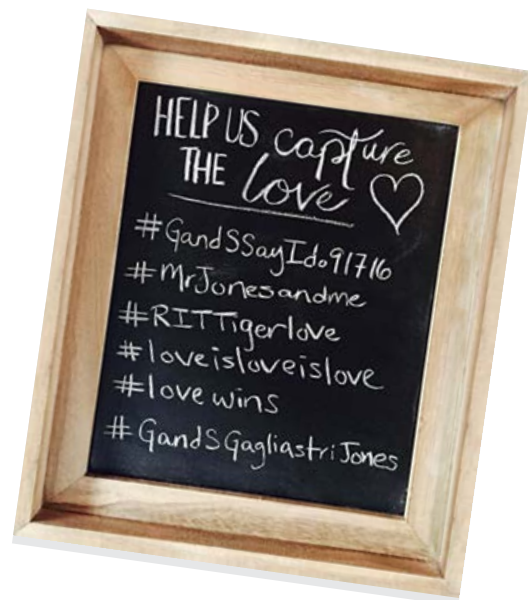 HELP US capture
THE love
#GandSSayIdo91716
#MrJonesandme
#RITTigerlove
#loveisloveislove
#love wins
#GandSGagliastriJones